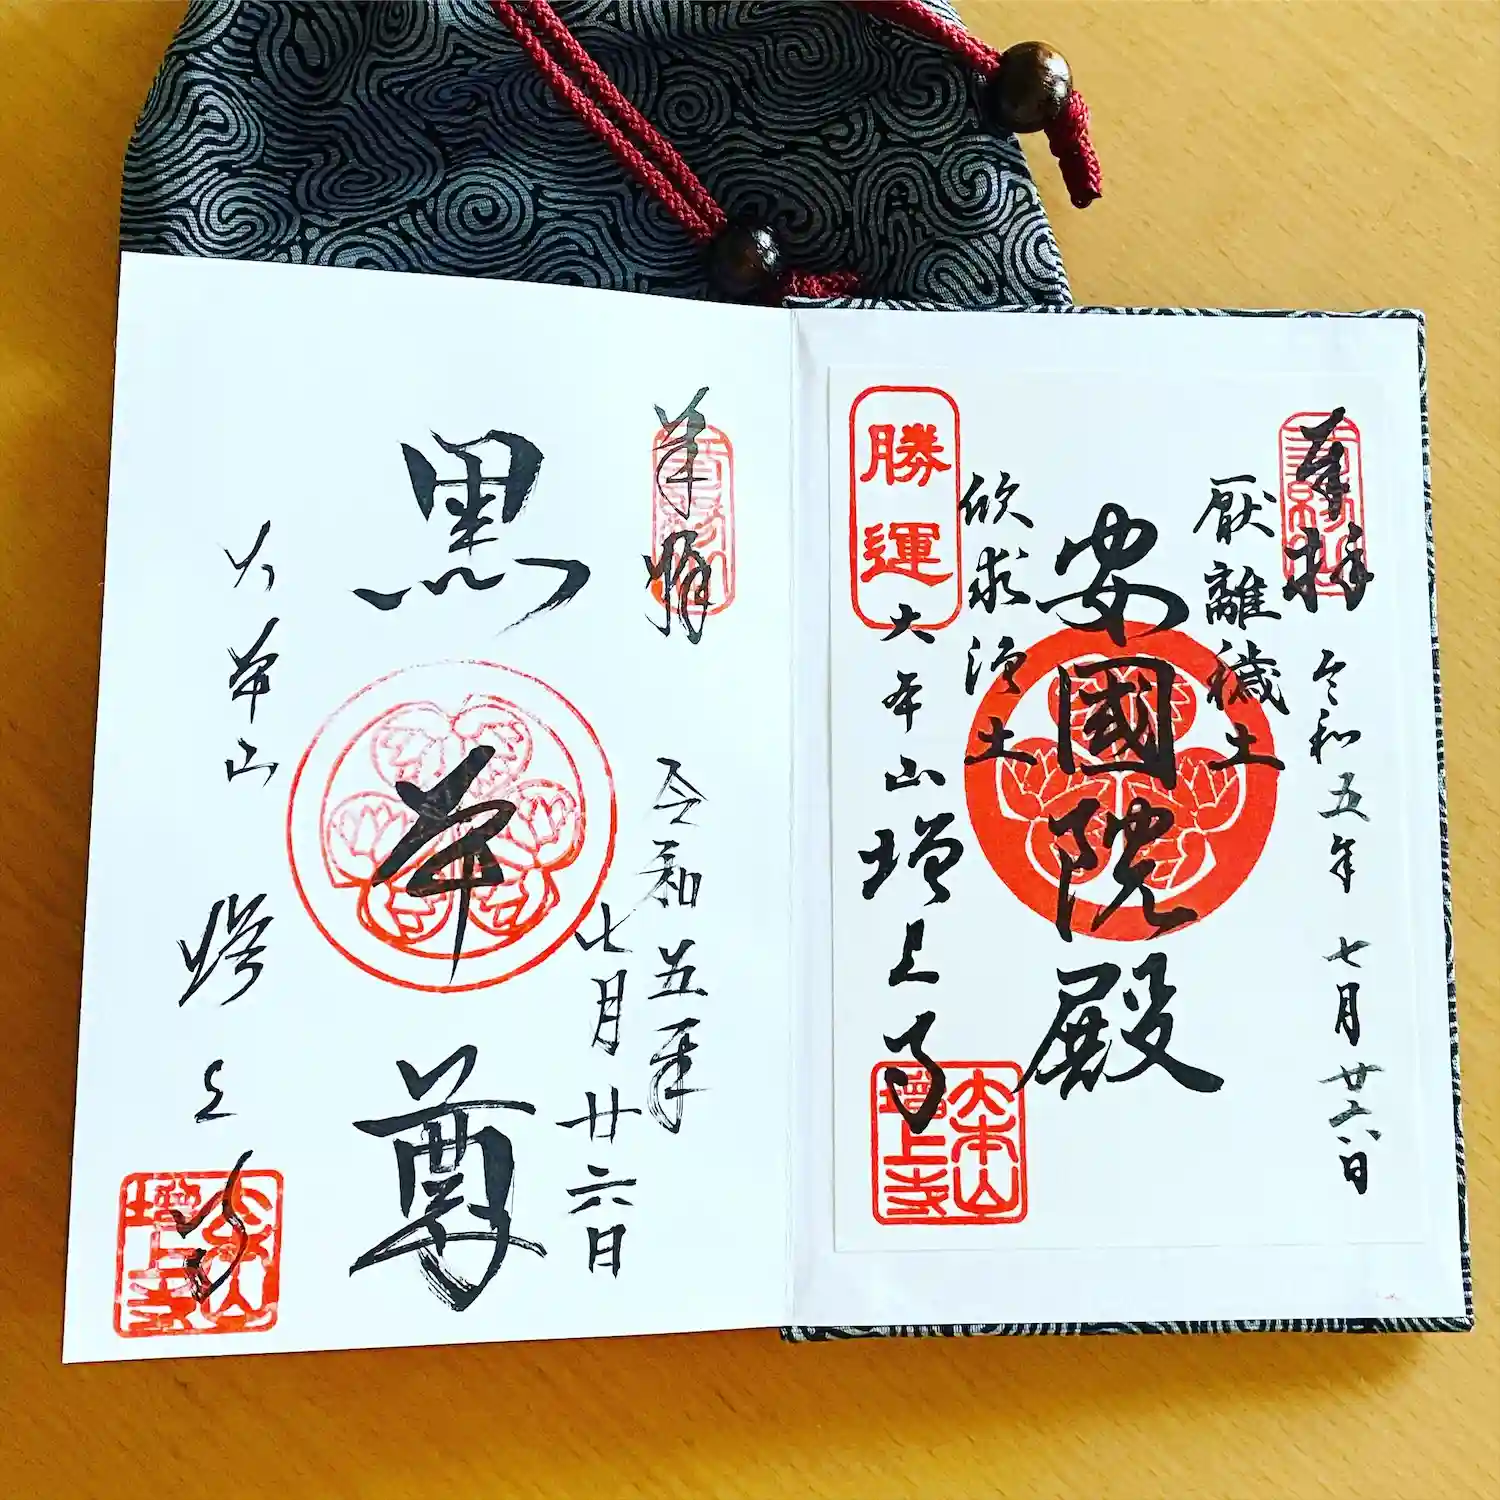 奉拝
令和五年 七月廿六日
厭離穢土
安國院殿
欣求浄土
勝運
大本山増上寺
大本山
増上寺
奉拝
令和五年
七月廿六日
黒本尊
大本山 増上寺
大本山
増上寺